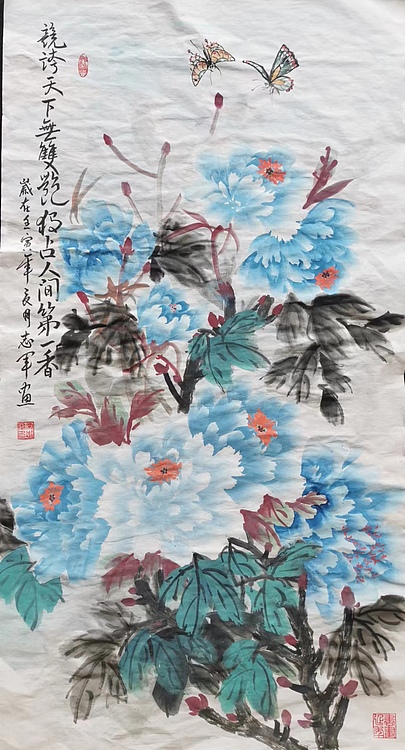 競誇天下無雙艷独占人間第一香
歲在壬寅年良月志军画